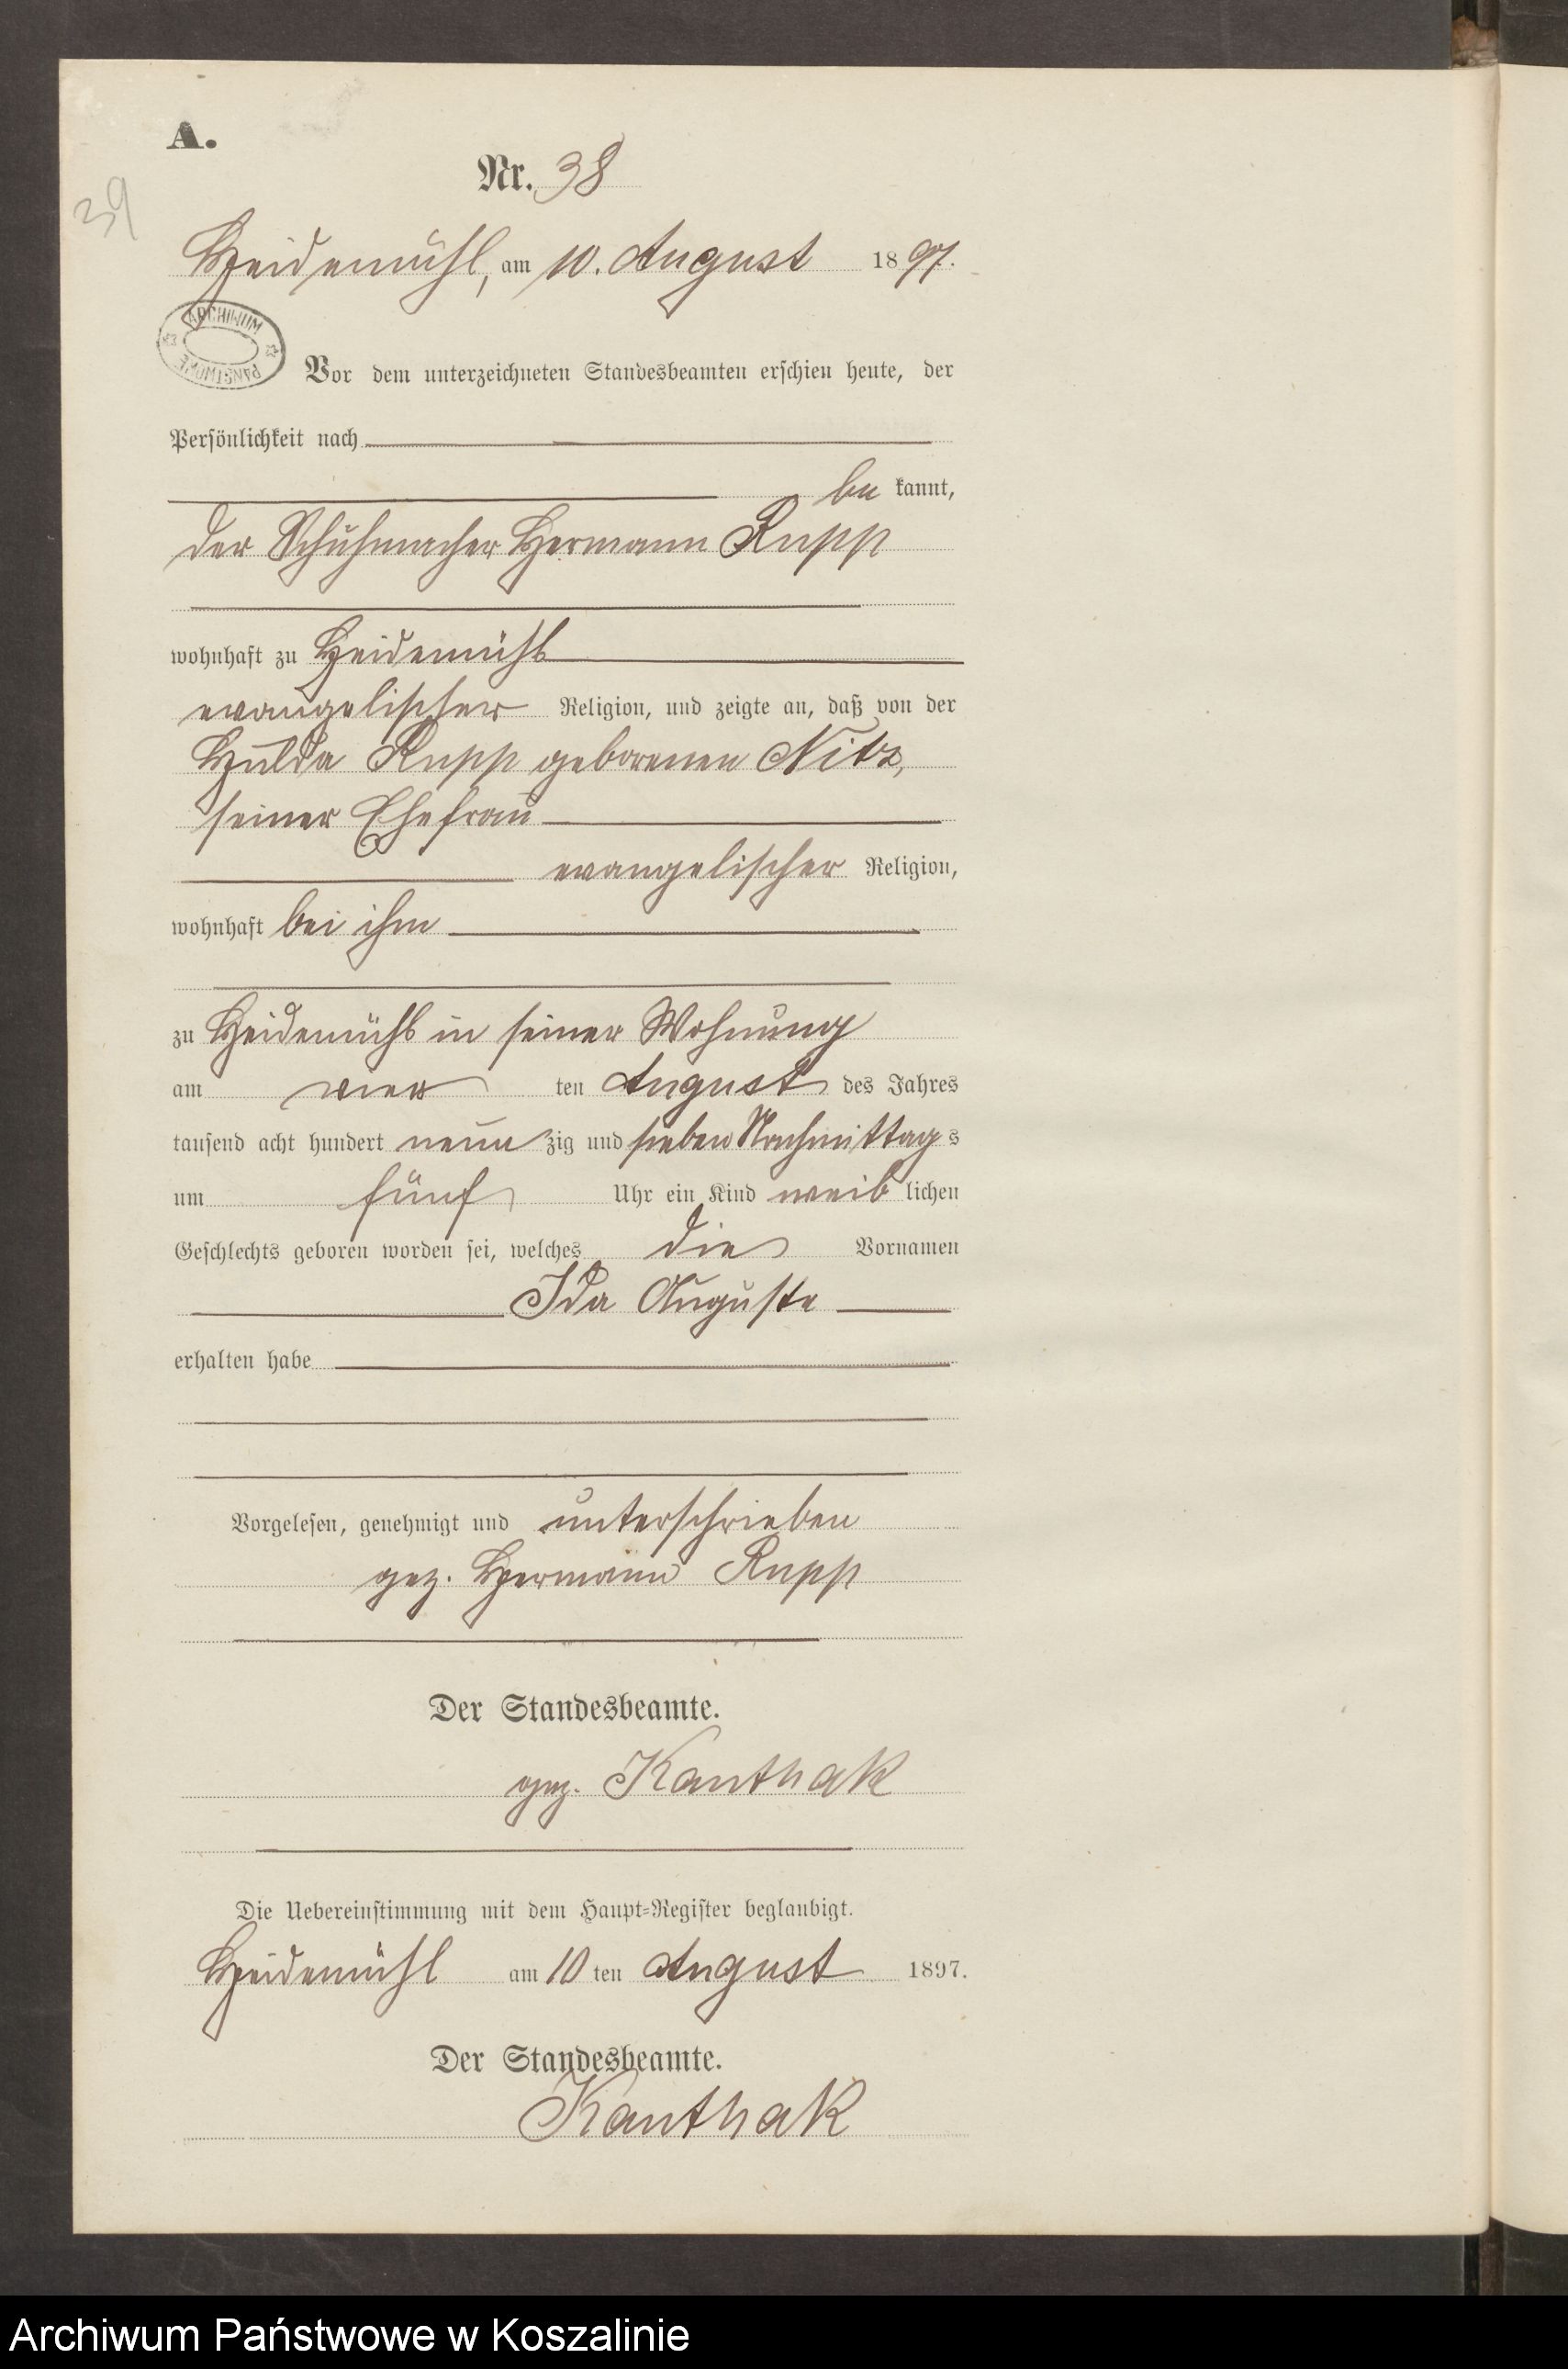 A.
Nr. 38
39
Heidemühl, am 10. August 1897.
ARCHIWUM PAŃSTWOWE
Vor dem unterzeichneten Standesbeamten erschien heute, der
Persönlichkeit nach
be kannt,
der Schuhmacher Hermann Rupp
wohnhaft zu Heidemühl
evangelischer Religion, und zeigte an, daß von der
Hulda Rupp geborenen Nitz,
seiner Ehefrau
evangelischer Religion,
wohnhaft bei ihm
zu Heidemühl in seiner Wohnung
am vier ten August des Jahres
tausend acht hundert neun zig und sieben Nachmittag s
um fünf Uhr ein Kind weib lichen
Geschlechts geboren worden sei, welches die Vornamen
Ida Auguste
erhalten habe
Vorgelesen, genehmigt und unterschrieben
gez. Hermann Rupp
Der Standesbeamte.
gez. Kanthak
Die Uebereinstimmung mit dem Haupt-Register beglaubigt.
Heidemühl am 10 ten August 1897.
Der Standesbeamte.
Kanthak
Archiwum Państwowe w Koszalinie